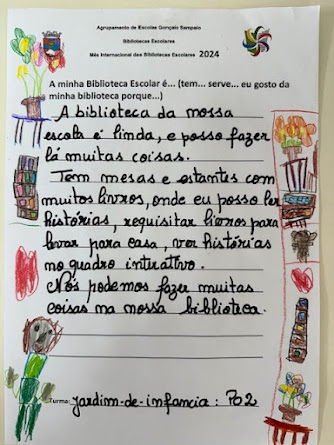 Agrupamento de Escolas Gonçalo Sampaio
Bibliotecas Escolares
Mês Internacional das Bibliotecas Escolares 2024
A minha Biblioteca Escolar é... (tem... serve... eu gosto da
minha biblioteca porque...)
A biblioteca da nossa
escola é linda, e posso fazer
lá muitas coisas.
Tem mesas e estantes com
muitos livros, onde eu posso ler
histórias, requisitar livros para
levar para casa, ver histórias
no quadro interativo.
Nós podemos fazer muitas
coisas na nossa biblioteca.
Turma: jardim-de-infancia: PO2